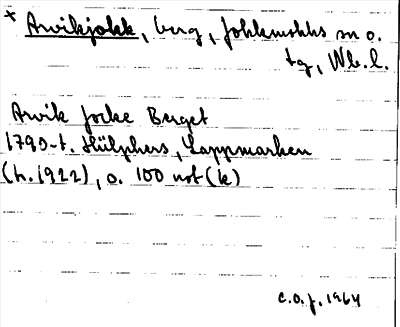 * Arvikjokk, berg, Jokkmokks sn o.
tg, Nb. l.
Arvik Jocke Berget
1790-t. Hülphers, Lappmarken
(tr. 1922), o. 100 not (k)
C.O.J. 1964